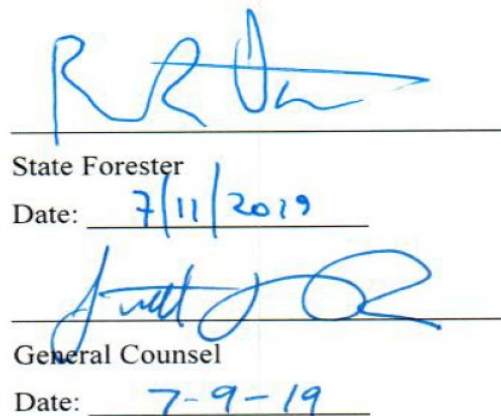 State Forester
Date: 7/11/2019
General Counsel
Date: 7-9-19